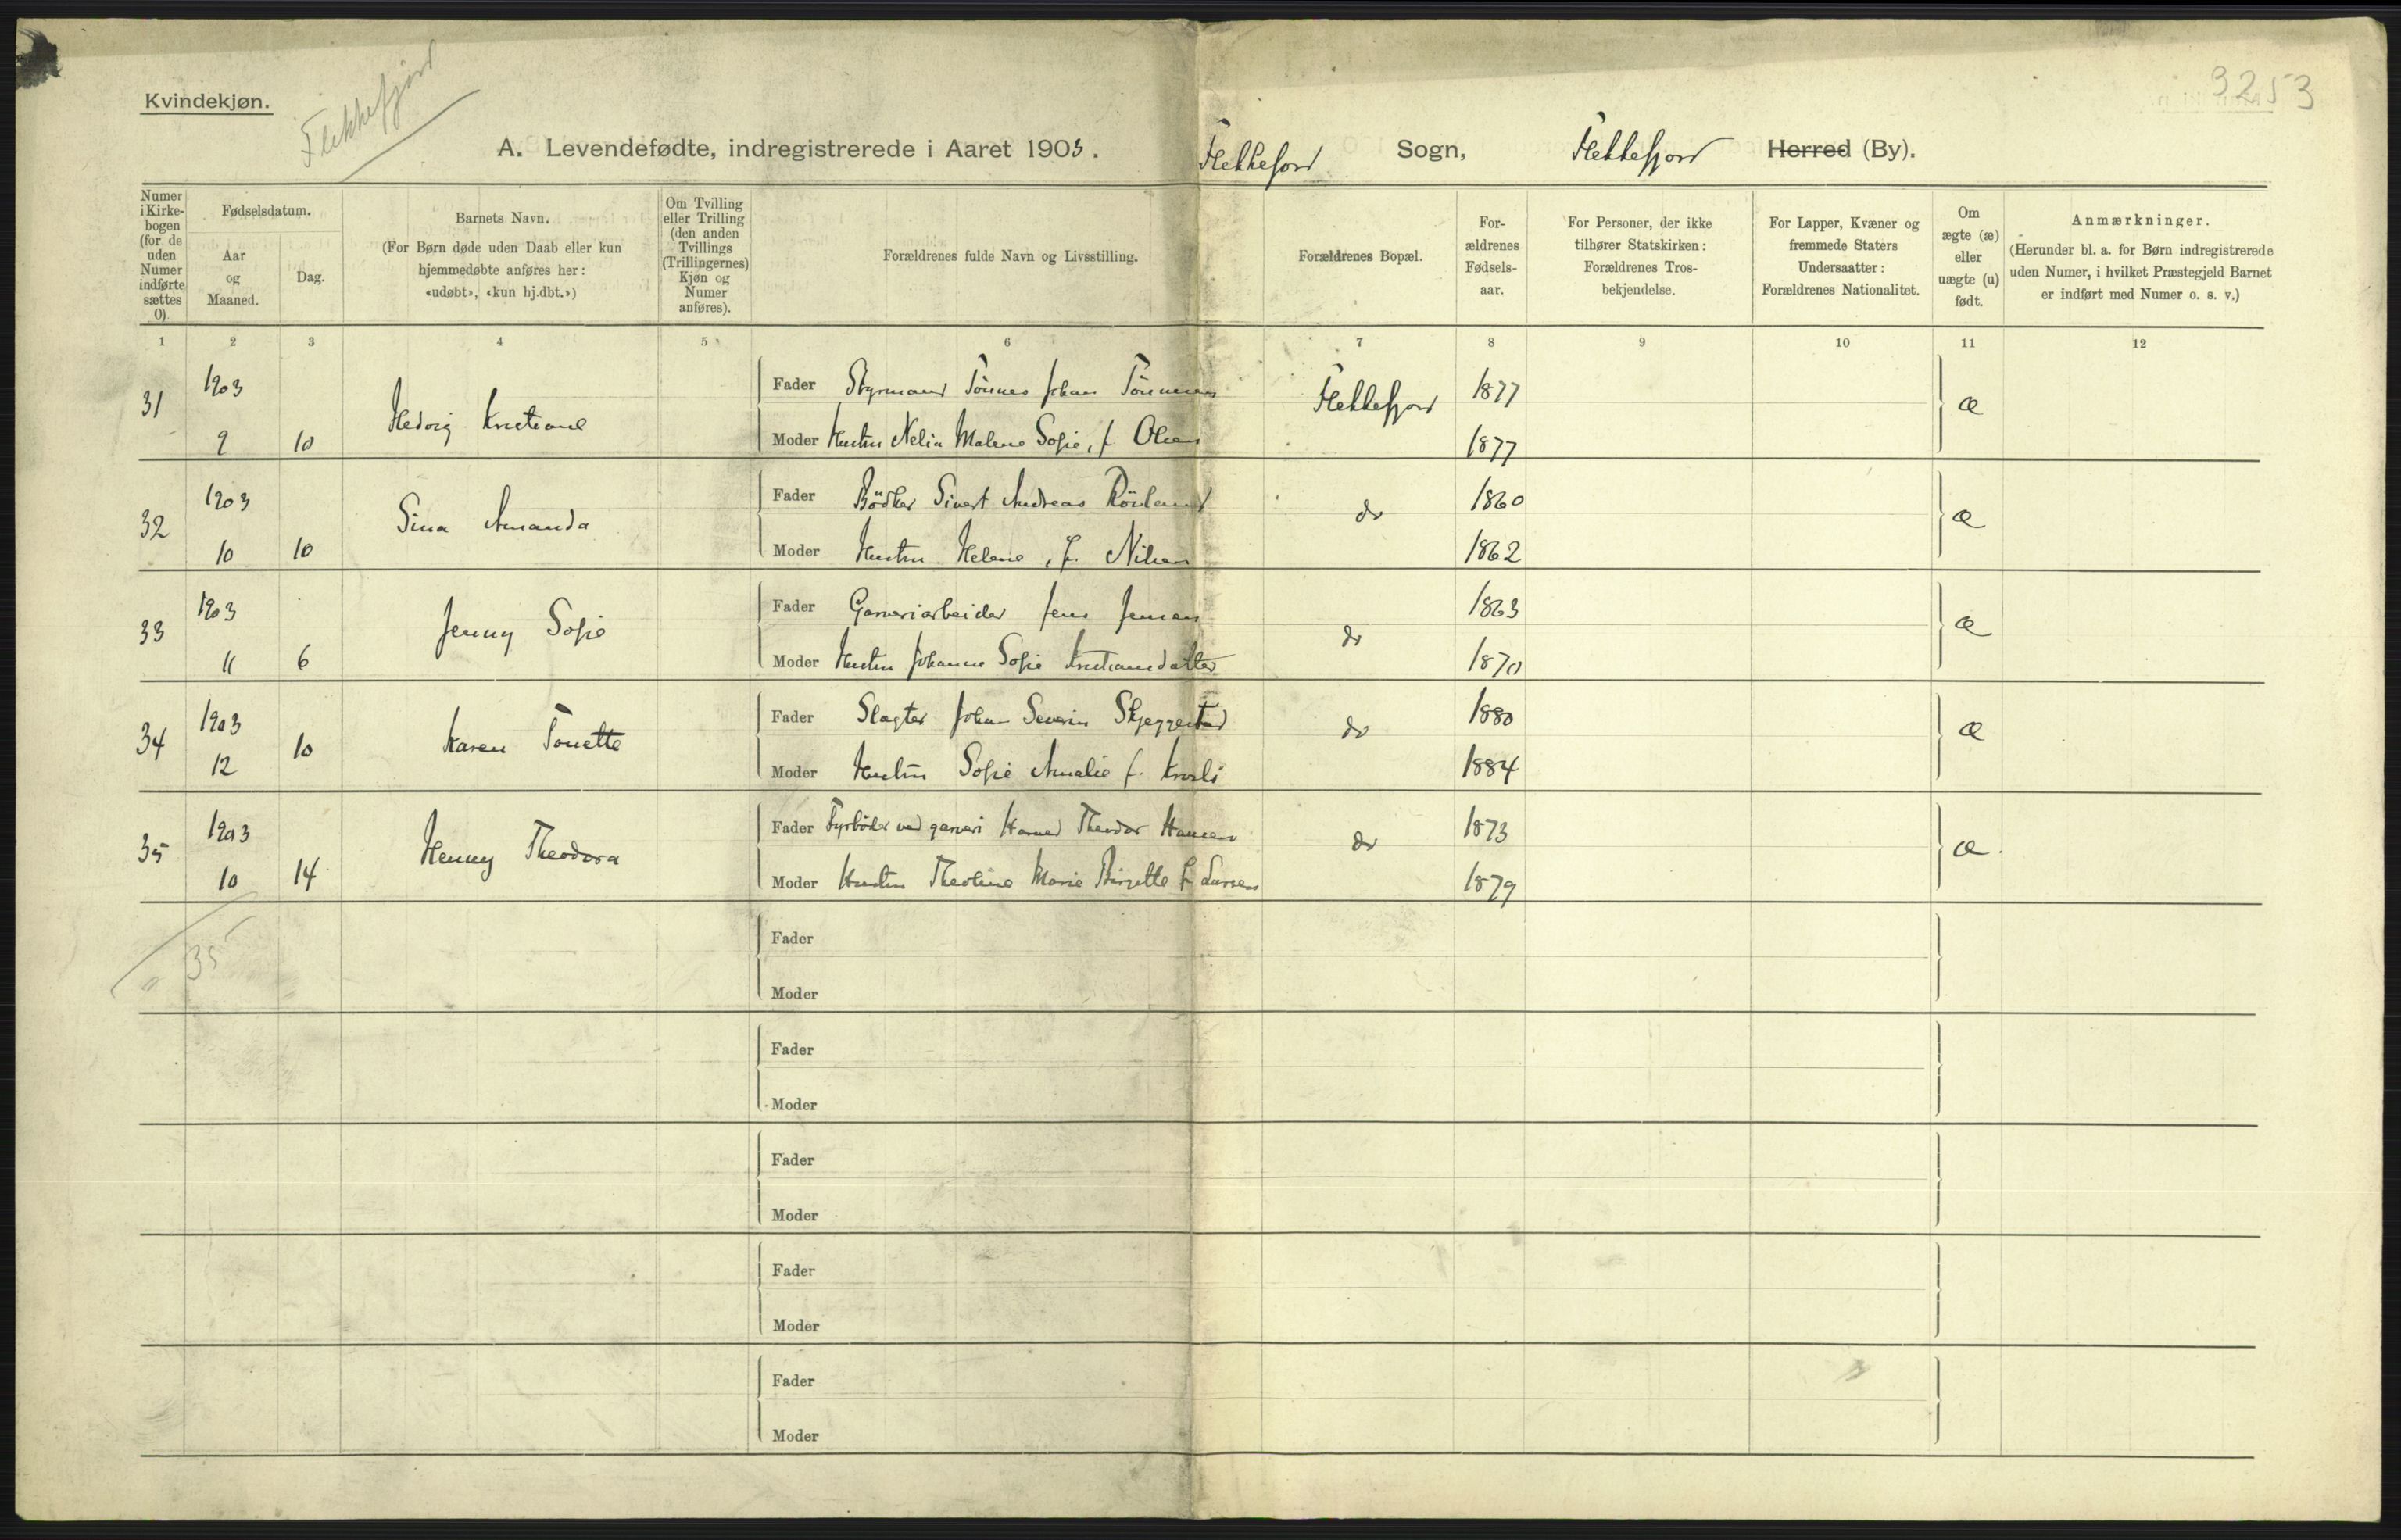 Kvindekjøn.
Flekkefjord
3253
A. Levendefødte, indregistrerede i Aaret 1903. Flekkefjord Sogn, Flekkefjord Herred (By).
Numer i Kirkebogen (for de uden Numer indførte sættes 0).
Fødselsdatum.
Aar og Maaned.
Dag.
Barnets Navn.
(For Børn døde uden Daab eller kun hjemmedøbte anføres her: «udøbt», «kun hj.dbt.»)
Om Tvilling eller Trilling (den anden Tvillings (Trillingernes) Kjøn og Numer anføres).
Forældrenes fulde Navn og Livsstilling.
Forældrenes Bopæl.
Forældrenes Fødselsaar.
For Personer, der ikke tilhører Statskirken: Forældrenes Trosbekjendelse.
For Lapper, Kvæner og fremmede Staters Undersaatter: Forældrenes Nationalitet.
Om ægte (æ) eller uægte (u) født.
Anmærkninger.
(Herunder bl. a. for Børn indregistrerede uden Numer, i hvilket Præstegjeld Barnet er indført med Numer o. s. v.)
1 2 3 4 5 6 7 8 9 10 11 12
31 1903 9 10 Hedvig Kristiane
Fader Styrmand Tönnes Johan Tönnesen Flekkefjord 1877 æ
Moder Hustru Nelia Malene Sofie, f. Olsen 1877
32 1903 10 10 Sina Amanda
Fader Bödker Sivert Andreas do 1860 æ
Moder Hustru Helene, f. Nilsen 1862
33 1903 11 6 Jenny Sofie
Fader Garveriarbeider Jens Jensen do 1863 æ
Moder Hustru Johanne Sofie Kristiansdatter 1870
34 1903 12 10 Karen Tonette
Fader Slagter Johan Severin Skjeggestad do 1880 æ
Moder Hustru Sofie Amalie f. 1884
35 1903 10 14 Henny Theodora
Fader Fyrbøder ved garveri Theodor Hansen do 1873 æ
Moder Hustru Theoline Marie Birgitte f. Larsen 1879
35
Fader
Moder
Fader
Moder
Fader
Moder
Fader
Moder
Fader
Moder